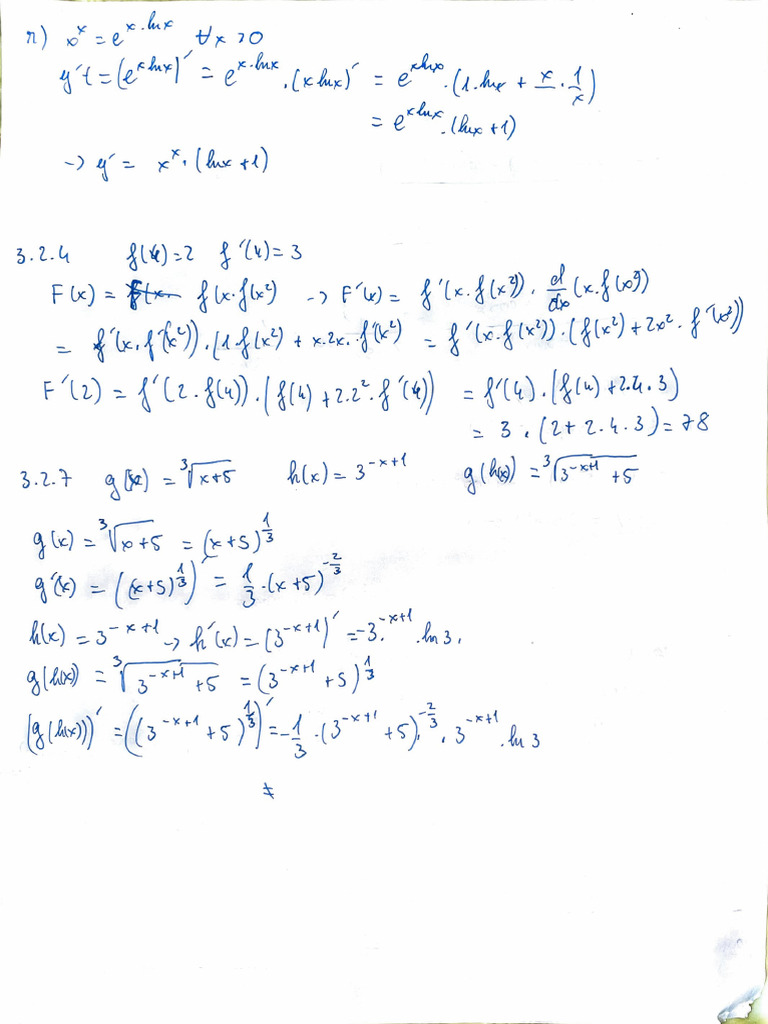 r) x^x = e^{x·lnx} ∀x>0
y't = (e^{xlnx})' = e^{x·lnx}·(xlnx)' = e^{xlnx}·(1·lnx + x·1/x)
= e^{xlnx}·(lnx+1)
→ y' = x^x·(lnx+1)
3.2.4 f(4)=2 f'(4)=3
F(x) = f(x·f(x²) → F'(x) = f'(x·f(x²))·d/dx(x·f(x²))
= f'(x·f'(x²))·(1·f(x²) + x·2x·f'(x²) = f'(x·f(x²))·(f(x²)+2x²·f'(x²))
F'(2) = f'(2·f(4))·(f(4)+2·2²·f'(4)) = f'(4)·(f(4)+2·4·3)
= 3·(2+2·4·3)=78
3.2.7 g(x) = ∛(x+5) h(x) = 3^{-x+1} g(h(x)) = ∛(3^{-x+1}+5)
g(x) = ∛(x+5) = (x+5)^{1/3}
g'(x) = ((x+5)^{1/3})' = 1/3·(x+5)^{-2/3}
h(x) = 3^{-x+1} → h'(x) = (3^{-x+1})' = -3^{-x+1}·ln3.
g(h(x)) = ∛(3^{-x+1}+5) = (3^{-x+1}+5)^{1/3}
(g(h(x)))' = ((3^{-x+1}+5)^{1/3})' = -1/3·(3^{-x+1}+5)^{-2/3}·3^{-x+1}·ln3
≠